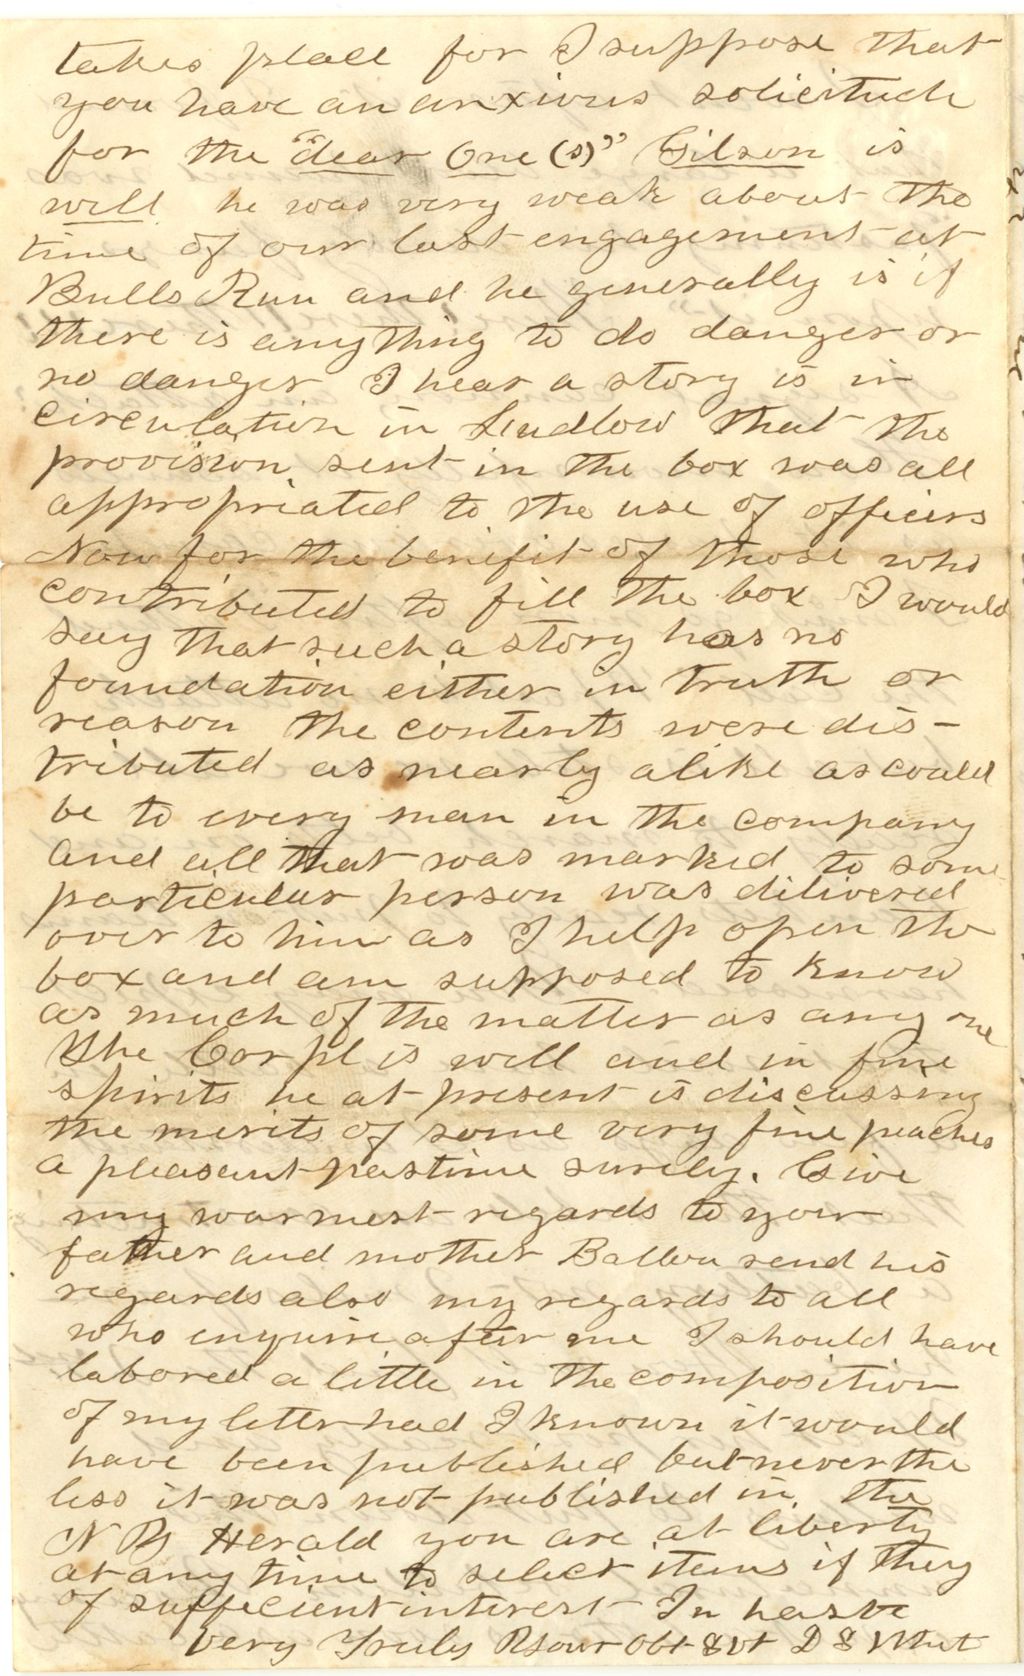 takes place for I suppose that
you have an anxious solicitude
for the "dear One(s)" Gilson is
well he was very weak about the
time of our last engagement at
Bulls Run and he generally is if
there is anything to do danger or
no danger I hear a story is in
circulation in Ludlow that the
provision sent in the box was all
appropriated to the use of officers
Now for the benifit of those who
contributed to fill the box I would
say that such a story has no
foundation either in truth or
reason the contents were dis-
tributed as nearly alike as could
be to every man in the company
and all that was marked to some
particular person was delivered
over to him as I help open the
box and am supposed to know
as much of the matter as any one
The Corpl is well and in fine
spirits he at present is discussing
the merits of some very fine peaches
a pleasant pastime surely. Give
my warmest regards to your
father and mother Ballou send his
regards also my regards to all
who enquire after me I should have
labored a little in the composition
of my letter had I known it would
have been published but never the
less it was not published in the
N Y Herald you are at liberty
at any time to select items if they
of sufficient interest In haste
Very Truly Your Obt Svt D S